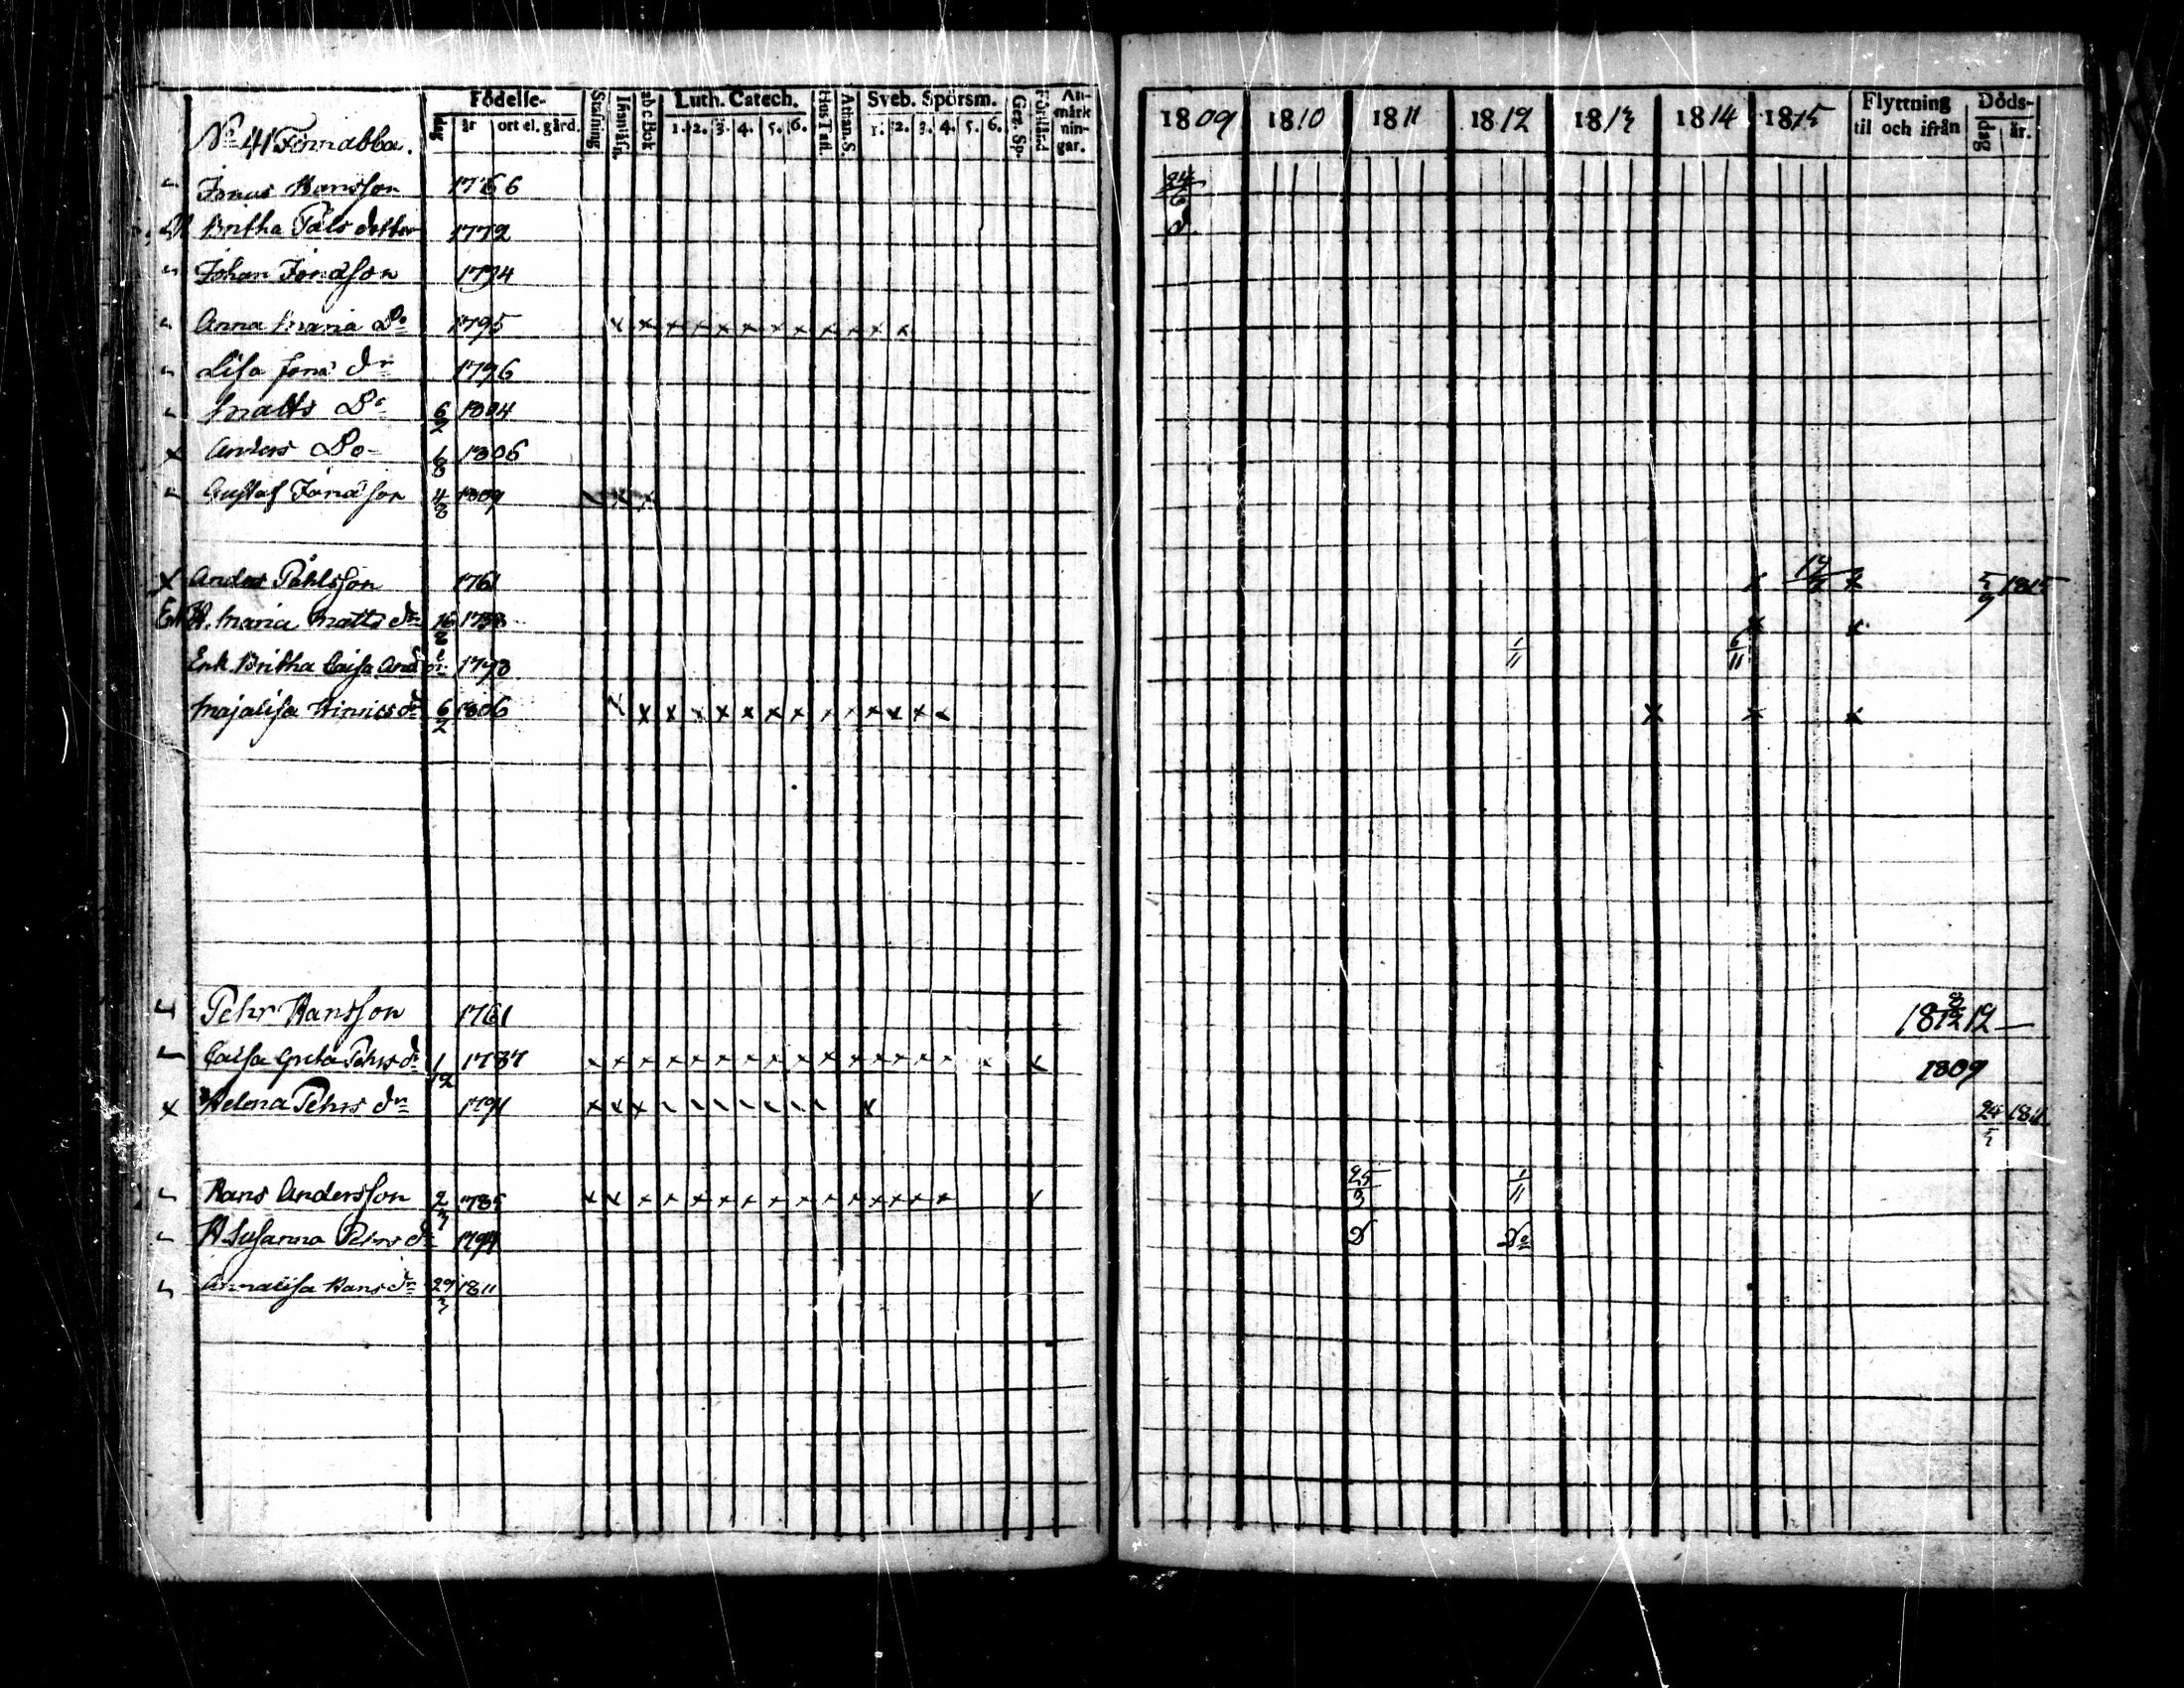 Födelse- Stafning Innanläsn. abc Bok Luth. Catech. Hus Tafl. Athan. S. Sveb. Spörsm. Gez. Sp. Förstånd Anmärkningar. 1809 1810 1811 1812 1813 1814 1815 Flyttning til och ifrån Döds-
dag år ort el. gård. 1. 2. 3. 4. 5. 6. 1. 2. 3. 4. 5. 6. dag år.
No 41 Finnabba.
Jonas Hansson 1766 24/6
Britha Påls dotter 1772 D
Johan Jonasson 1794
Anna Maria Do 1795 x x x x x x x x x x x x
Lisa Jona dr 1796
Matts Do 6/2 1804
x Anders Do 1/8 1806
Gustaf Jonasson 4/8 1809
x Anders Påhlsson 1761 x 5/9 1815
H. Maria Matts dr 16/8 1758 x x
Enk. Britha Caisa And dr 1773 1/11 6/11
Majalisa Hinrics dr 6/2 1806 x x x x x x x x x x x x x x x x
Pehr Hansson 1761 1812
Caisa Greta Pehrs dr 1/12 1787 x x x x x x x x x x x x x x x x x 1809
x Helena Pehrs dr 1791 x x x x 24/5 1811
Hans Andersson 2/3 1785 x x x x x x x x x x x x x x x 25/3 1/11
H Susanna Pehrs dr D Do
Annalisa Hans dr 29/3 1811